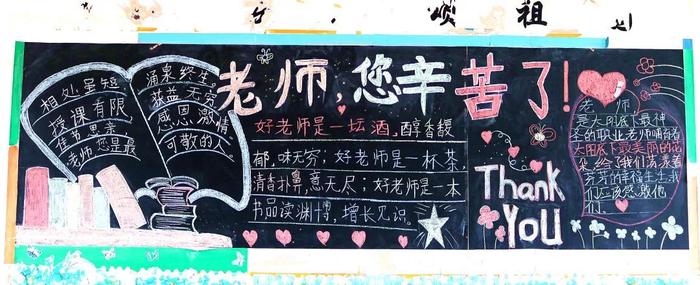 颂祖
老师,您辛苦了!
相处虽短
授课有限
佳节思亲
老师您是最
涌泉终生。
获益无穷
感恩激情
可敬的人。
好老师是一坛酒,醇香馥
郁,味无穷;好老师是一杯茶,
清香扑鼻,意无尽;好老师是一本
书,品读渊博,增长见识。
Thank
You
老师
是太阳底下最神
圣的职业老师用占着
太阳底下最美丽的花
朵,给了我们荡漾着
芬芳的幸福生生,我
们应该感激他
们。